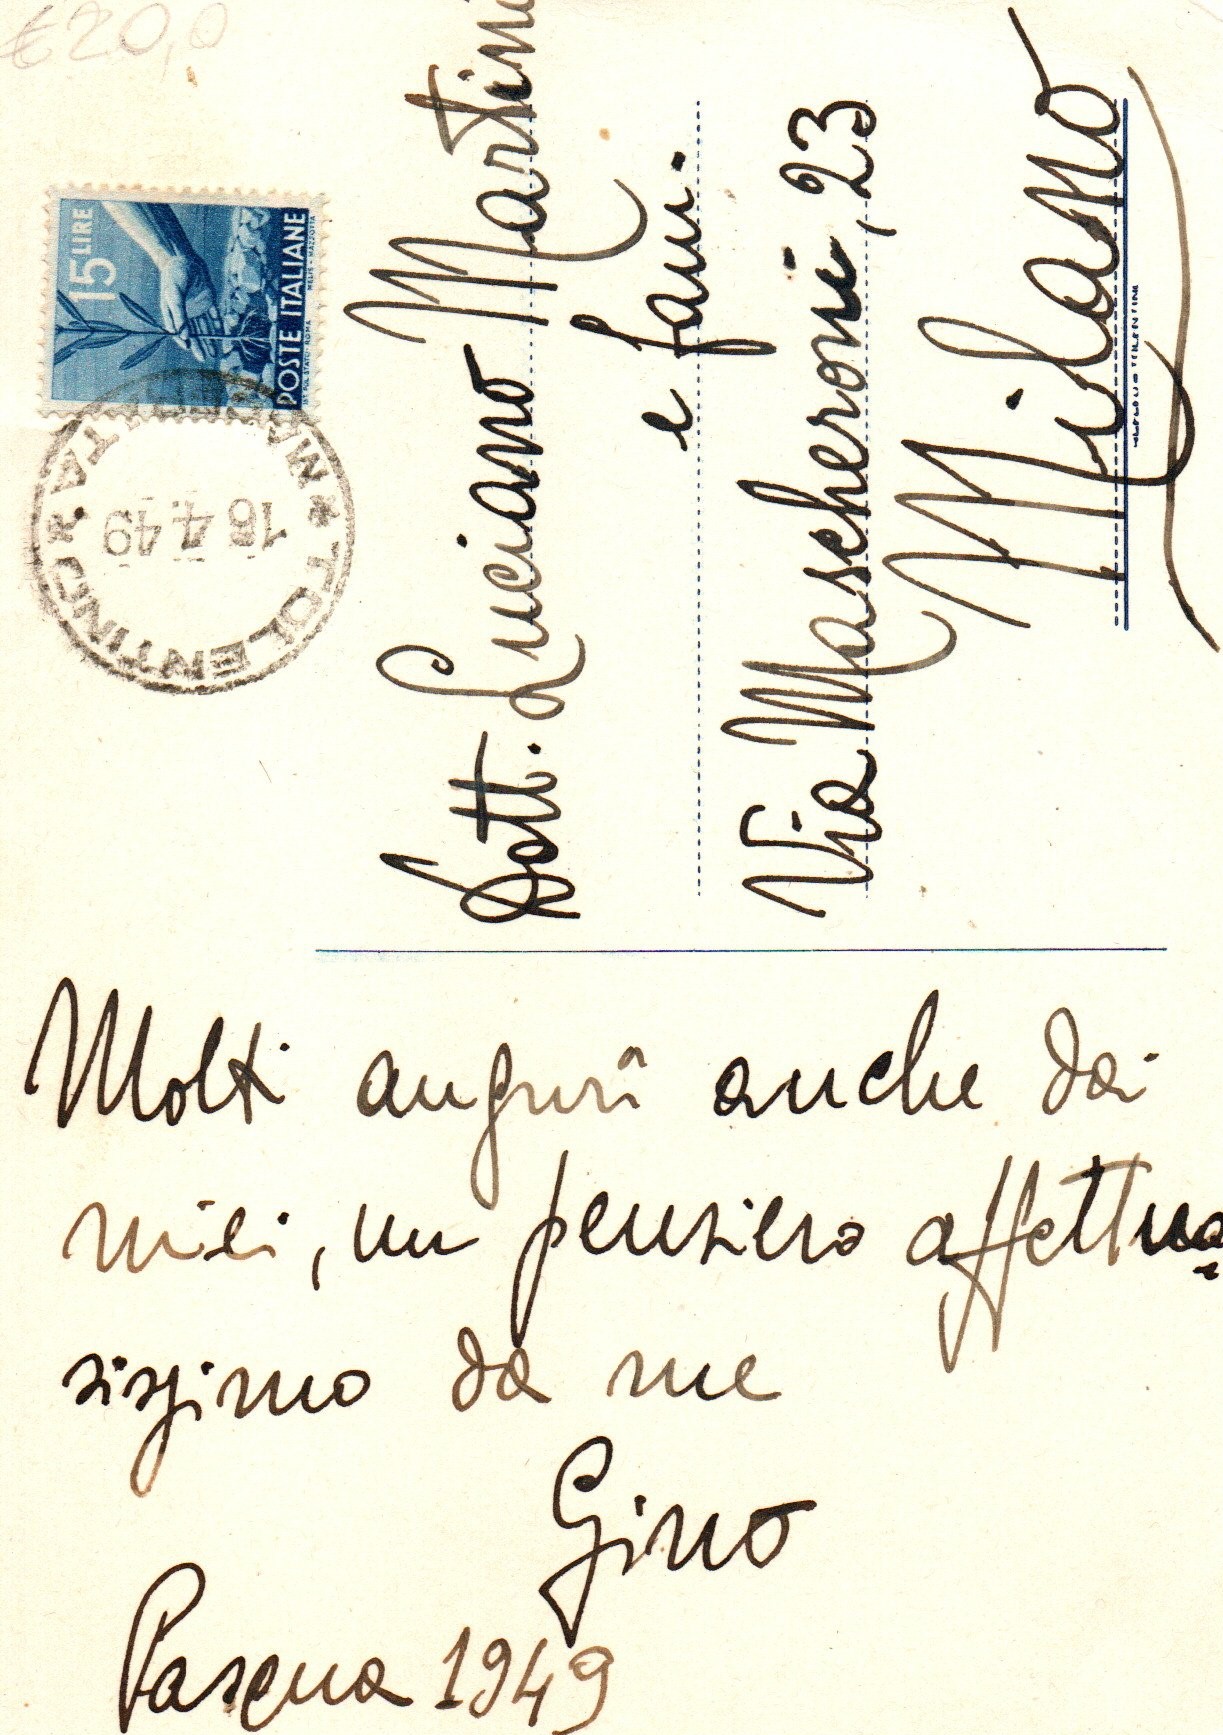 €20,0
15 LIRE
POSTE ITALIANE
TOLENTINO * MACERATA *
16.4.49
Dott. Luciano Martini
e fam.
Via Mascheroni, 23
Milano
Molti auguri anche dai
miei, un pensiero affettuo
sissimo da me
Gino
Pasqua 1949